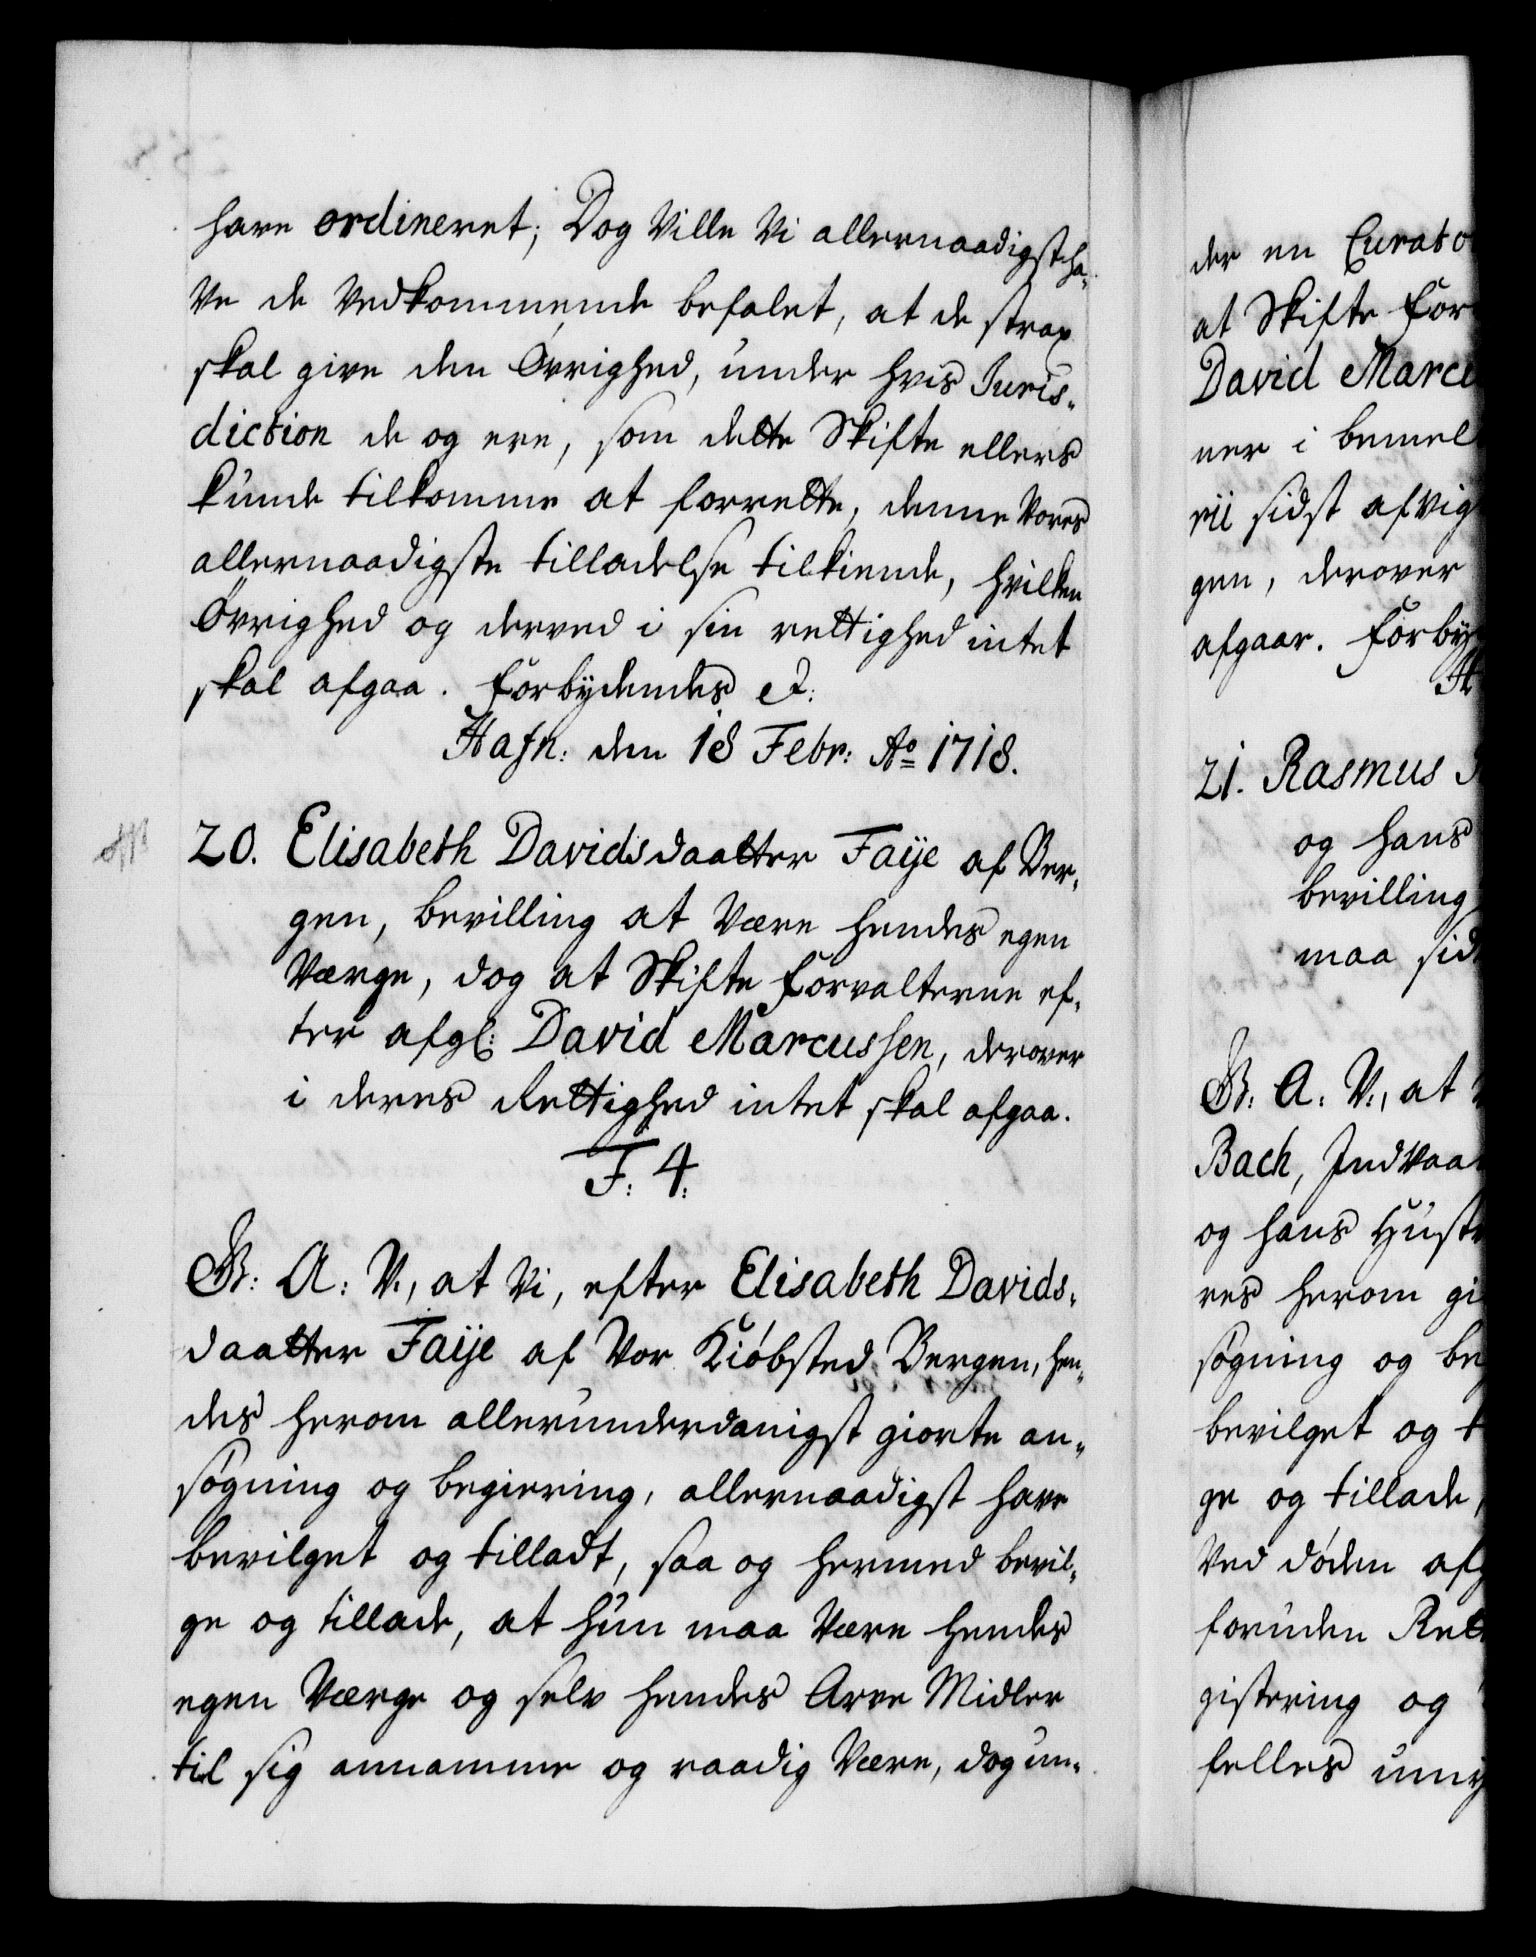 have ordineret; Dog Ville Vi allernaadigst ha-
ve de Vedkommende befalet, at de strax
skal give den Øvrighed, under hvis Juris-
diction de og ere, som dette Skifte ellers
kunde tilkomme at forrette, denne Vores
allernaadigste tilladelse tilkiende, hvilken
Øvrighed og derved i sin rettighed intet
skal afgaa. Forbydendes etc:
Hafn: den 18 Febr: Ao 1718.
20. Elisabeth Davidsdaatter Faije af Ber-
gen, bevilling at Være hendes egen
Værge, dog at Skifte Forvalterne ef-
ter afgl: David Marcussen, derover
i deres Rettighed intet skal afgaa.
F: 4:
Gr: A: V., at Vi, efter Elisabeth Davids-
daatter Faije af Vor Kiøbsted Bergen, hen-
des herom allerunderdanigst giorte an-
søgning og begiering, allernaadigst have
bevilget og tilladt, saa og hermed bevil-
ge og tillade, at hun maa Være hendes
egen Værge og selv hendes Arve Midler
til sig annamme og raadig Være, dog un-
der en Curato
at Skifte For
David Marcu
ner i bemel
rii sidst afvig
gen, derover
afgaar. Forby
H
21. Rasmus
og hans
bevilling
maa sid
Gr: A: V., at
Bach, Indvaa
og hans Hustr
res herom gi
søgning og be
bevilget og t
ge og tillade,
Ved døden afg
foruden Rett
gistering og
felles umy